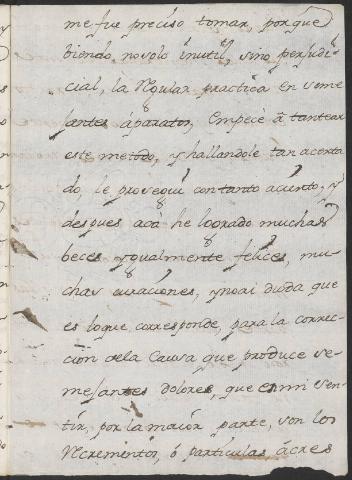 me fue preciso tomar, porque
biendo, no solo inutil, sino perjudi-
cial, la Regular practica en seme
jantes áparatos, Empecè â tantear
este metodo, y hallandole tan acerta
do, le proseguì con tanto acierto, y
despues acà he logrado muchas
beces, ygualmente felices, mu-
chas curaciones, y no ai duda que
es loque, corresponde, para la correc-
cion dela Causa que produce se-
mejantes dolores, que en mi sen-
tir, por la maior parte, son los
Recrementos, ò particulas ácres